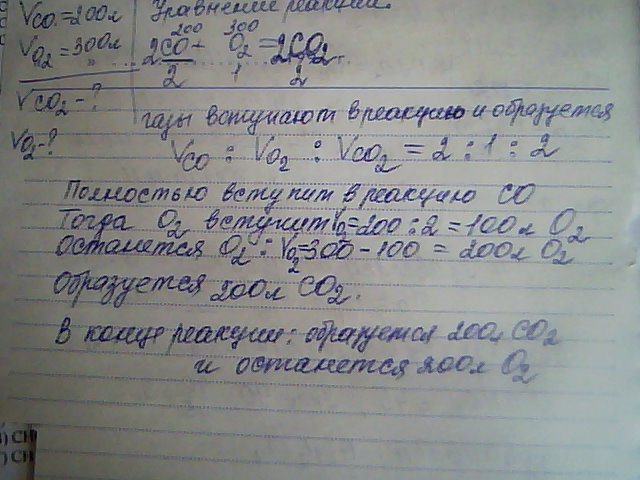 Vco = 200л Уравнение реакции.
200 300
VO2 = 300л 2CO + O2 = 2CO2
2 1 2
VCO2 - ?
газы вступают в реакцию и образуется
VO2 - ?
VCO : VO2 : VCO2 = 2 : 1 : 2
Полностью вступит в реакцию CO
Тогда O2 вступит VO2=200:2 = 100л O2
останется O2 : VO2=300-100 = 200л O2
Образуется 200л CO2.
В конце реакции: образуется 200л CO2
и останется 200л O2